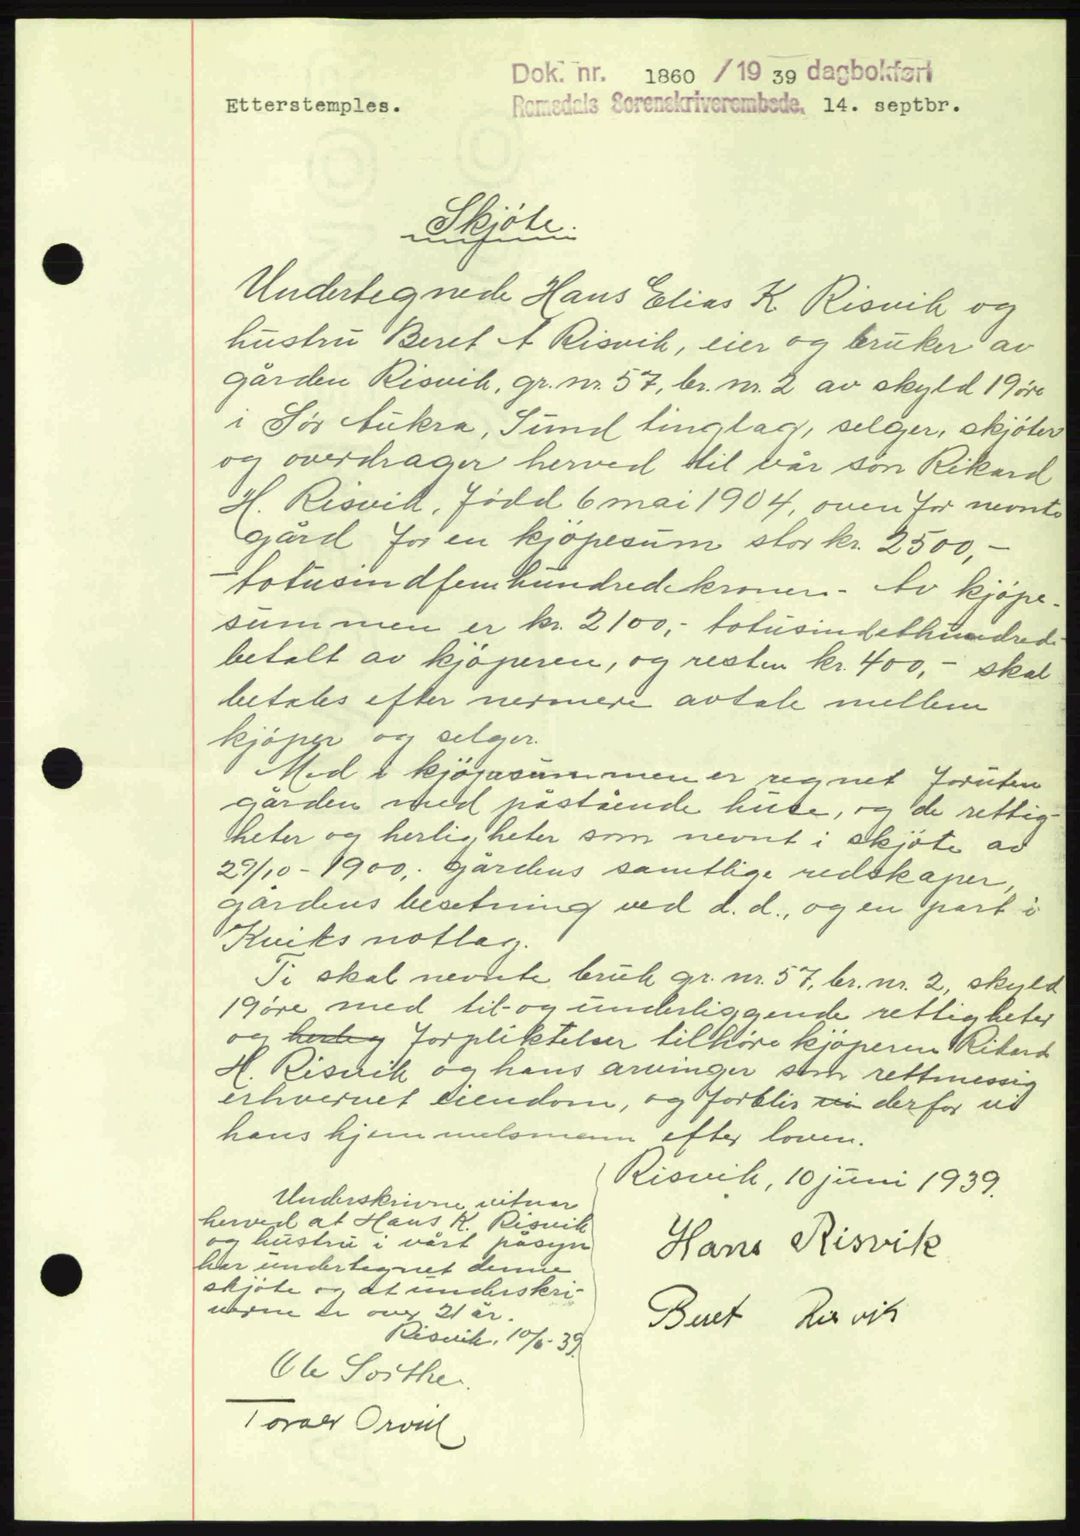 Dok. nr. 1860 / 19 39 dagbokført
Etterstemples. Romsdals Sorenskriverembede. 14. septbr.
Skjöte.
Undertegnede Hans Elias K. Risvik og
hustru Beret A Risvik, eier og bruker av
gården Risvik, gr. nr. 57, br. nr. 2 av skyld 19 öre
i Sör Aukra, Sund tinglag, selger, skjöter
og overdrager herved til vår sön Rikard
H. Risvik, född 6 mai 1904, oven for nevnte
gård for en kjöpesum stor kr. 2500,-
- totusindfemhundredekroner - Av kjöpe-
summen er kr. 2100,- totusindethundrede
betalt av kjöperen, og resten kr. 400,- skal
betales efter nermere avtale mellem
kjöper og selger.
Med i kjöpesummen er regnet foruten
gården med påstående huse, og de rettig-
heter og herligheter som nevnt i skjöte av
29/10 - 1900,- gårdens samtlige redskaper,
gårdens besetning ved d. d., og en part i
Kviks notlag.
Ti skal nevnte bruk gr. nr. 57, br. nr. 2, skyld
19 öre med til- og underliggende rettigheter
og herlig forpliktelser tilhöre kjöperen Rikard
H. Risvik og hans arvinger som rettmessig
erhvervet eiendom, og forblir vi derfor vi
hans hjemmelsmenn efter loven.
Risvik, 10 juni 1939.
Hans Risvik
Beret Risvik
Underskrivne vitner
herved at Hans K. Risvik
og hustru i vårt påsyn
har undertegnet denne
skjöte og at underskri-
verne er over 21 år.
Risvik, 10/6-39.
Ole
Orvik